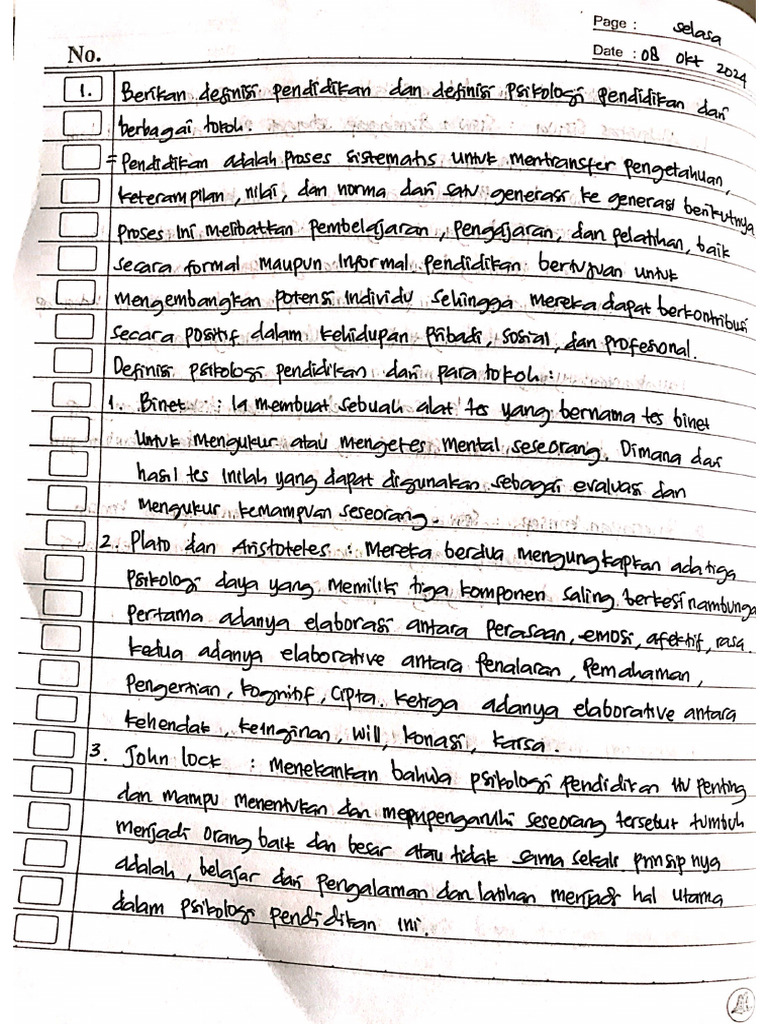 Page : selasa
No.
Date : 08 Okt 2024
1. Berikan definisi pendidikan dan definisi Psikologi pendidikan dari
berbagai tokoh.
= Pendidikan adalah Proses sistematis untuk mentransfer pengetahuan,
keterampilan, nilai, dan norma dari satu generasi ke generasi berikutnya
proses ini melibatkan pembelajaran, pengajaran, dan pelatihan, baik
secara formal maupun informal pendidikan bertujuan untuk
mengembangkan potensi individu sehingga mereka dapat berkontribusi
secara positif dalam kehidupan pribadi, sosial, dan profesional.
Definisi psikologi pendidikan dari para tokoh :
1. Binet : Ia membuat sebuah alat tes yang bernama tes binet
untuk mengukur atau mengetes mental seseorang. Dimana dari
hasil tes inilah yang dapat digunakan sebagai evaluasi dan
mengukur kemampuan seseorang.
2. Plato dan Aristoteles : Mereka berdua mengungkapkan ada tiga
psikologi daya yang memiliki tiga komponen saling berkesinambungan
Pertama adanya elaborasi antara perasaan, emosi, afektif, rasa.
kedua adanya elaborative antara penalaran, pemahaman,
Pengertian, kognitif, cipta. ketiga adanya elaborative antara
kehendak, keinginan, will, konasi, karsa.
3. John lock : menekankan bahwa psikologi pendidikan itu penting
dan mampu menentukan dan seseorang tersebut tumbuh
menjadi orang baik dan besar atau tidak sama sekali prinsip nya
adalah, belajar dari pengalaman dan latihan menjadi hal utama
dalam psikologi pendidikan ini.